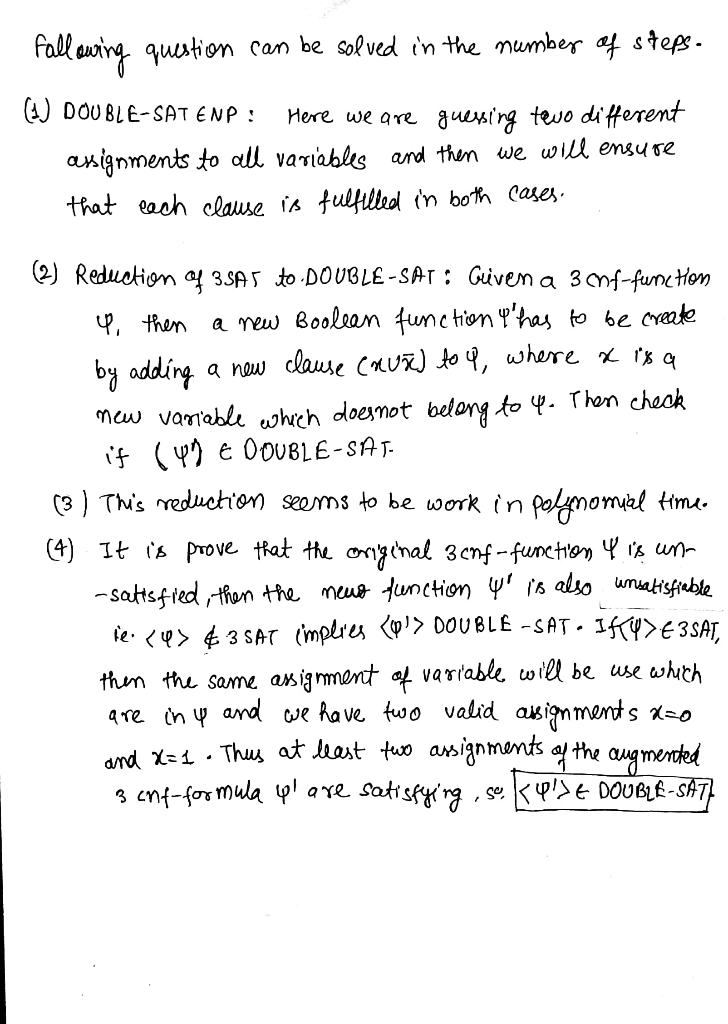 Following question can be solved in the number of steps.
(1) DOUBLE-SAT ∈NP : Here we are guessing two different
assignments to all variables and then we will ensure
that each clause is fulfilled in both cases.
(2) Reduction of 3SAT to DOUBLE-SAT : Given a 3 cnf-function
φ, then a new Boolean function φ' has to be create
by adding a new clause (x∪x̄) to φ, where x is a
new variable which doesnot belong to φ. Then check
if (φ') ∈ DOUBLE-SAT.
(3) This reduction seems to be work in polynomial time.
(4) It is prove that the original 3cnf-function φ is un-
-satisfied, then the new function φ' is also unsatisfiable
ie. <φ> ∉ 3SAT implies <φ'> DOUBLE-SAT. If <φ> ∈ 3SAT,
then the same assignment of variable will be use which
are in φ and we have two valid assignments x=0
and x=1. Thus at least two assignments of the augmented
3 cnf-formula φ' are satisfying, so, <φ'> ∈ DOUBLE-SAT